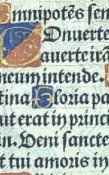 mnipotẽs sem
Onuerte
auerte ir
neum intende.
tina Gloria pa
ut erat in princi
us. Veni sancte
t tui amoris in